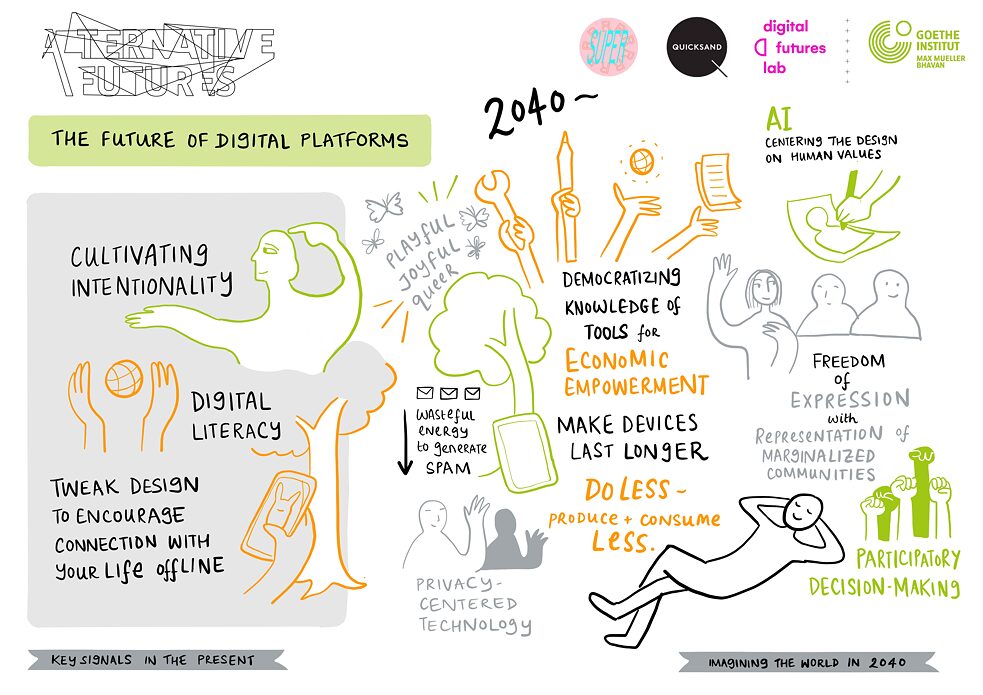 ALTERNATIVE
FUTURES
SUPER
QUICKSAND
digital
futures
lab
GOETHE
INSTITUT
MAX MUELLER
BHAVAN
THE FUTURE OF DIGITAL PLATFORMS
2040~
AI
CENTERING THE DESIGN
ON HUMAN VALUES
CULTIVATING
INTENTIONALITY
DIGITAL
LITERACY
TWEAK DESIGN
TO ENCOURAGE
CONNECTION WITH
YOUR LIFE OFFLINE
KEY SIGNALS IN THE PRESENT
PLAYFUL
JOYFUL
QUEER
WASTEFUL
ENERGY
to generate
SPAM
PRIVACY-
CENTERED
TECHNOLOGY
DEMOCRATIZING
KNOWLEDGE OF
TOOLS for
ECONOMIC
EMPOWERMENT
MAKE DEVICES
LAST LONGER
DO LESS -
PRODUCE + CONSUME
LESS.
FREEDOM
OF
EXPRESSION
with
REPRESENTATION of
MARGINALIZED
COMMUNITIES
PARTICIPATORY
DECISION-MAKING
IMAGINING THE WORLD IN 2040